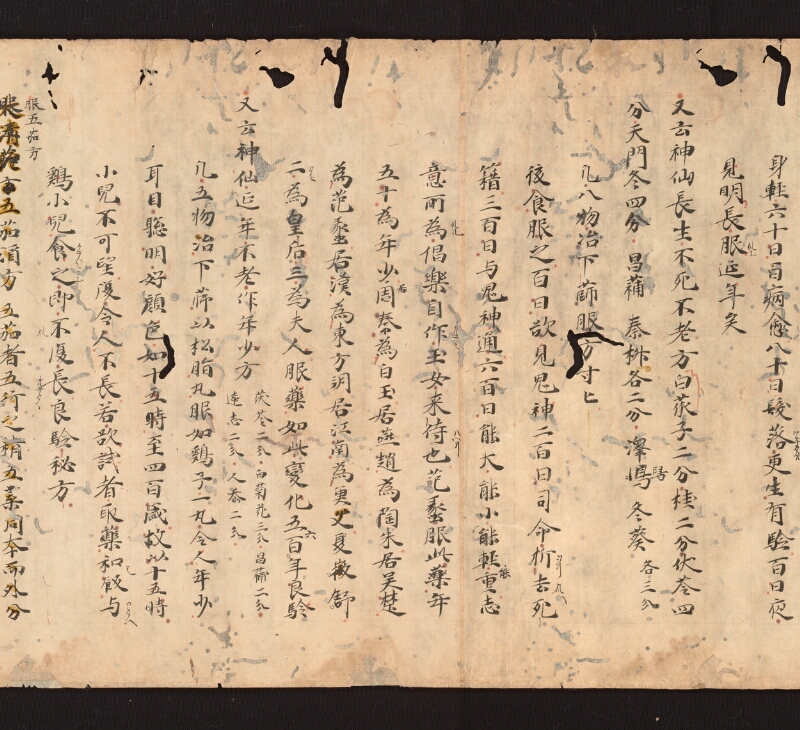 身軽六十日百病愈八十日髪落更生有験百日夜
見明長服延年矣
又云神仙長生不死不老方白茯子二分桂二分伏苓四
分天門冬四分 昌蒲 秦椒各二分 澤寫 冬葵 各三分
凡八物治下篩服方寸匕
後食服之百日欲見鬼神二百日司命折去死
籍三百日与鬼神通六百日能大能小能軽重志
意所為倡樂自作玉女来侍也范蠡服此藥年
五十為年少周秦為白玉居燕趙為陶朱居吴楚
為范蠡居漢為東方朔居江南為更父夏徴舒
二為皇后三為夫人服藥如此變化五百年良験
又云神仙延年不老作年少方 茯苓二分 白菊花三分 昌蒲二分
遠志二分 人参二分
凡五物治下篩以松脂丸服如鶏子一丸令人年少
耳目聡明好顔色如十五時至四百歳故以十五時
小児不可望復令人不長若欲試者取藥和飯与
鶏小児食之即不復長良験秘方
服五茄方
五茄酒方 五茄者五行之精五葉同本而外分